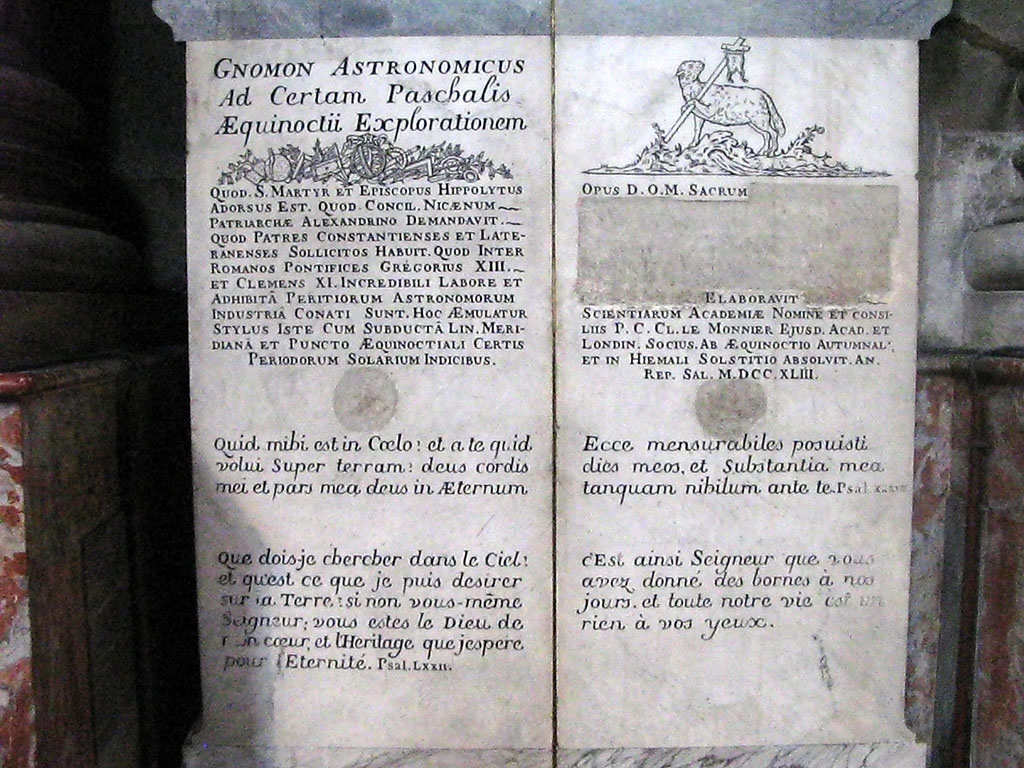 GNOMON ASTRONOMICUS
Ad Certam Paschalis
Æquinoctii Explorationem
QUOD. S. MARTYR ET EPISCOPUS HIPPOLYTUS
ADORSUS EST. QUOD CONCIL. NICÆNUM
PATRIARCHÆ ALEXANDRINO DEMANDAVIT.
QUOD PATRES CONSTANTIENSES ET LATE-
RANENSES SOLLICITOS HABUIT. QUOD INTER
ROMANOS PONTIFICES GREGORIUS XIII.
ET CLEMENS XI. INCREDIBILI LABORE ET
ADHIBITÂ PERITIORUM ASTRONOMORUM
INDUSTRIÂ CONATI SUNT. HOC ÆMULATUR
STYLUS ISTE CUM SUBDUCTÂ LIN. MERI-
DIANÂ ET PUNCTO ÆQUINOCTIALI CERTIS
PERIODORUM SOLARIUM INDICIBUS.
Quid mihi est in Cœlo? et a te quid
volui Super terram? deus cordis
mei et pars mea deus in Æternum
Que dois je chercher dans le Ciel?
et qu'est ce que je puis desirer
sur la Terre? si non vous-même
Seigneur; vous estes le Dieu de
cœur, et l'Heritage que j'espere
pour l'Eternité. Psal. LXXII.
OPUS D. O. M. SACRUM
ELABORAVIT
SCIENTIARUM ACADEMIÆ NOMINE ET CONSI-
LIIS P. C. CL. LE MONNIER EJUSD. ACAD. ET
LONDIN. SOCIUS. AB ÆQUINOCTIO AUTUMNALI
ET IN HIEMALI SOLSTITIO ABSOLVIT. AN.
REP. SAL. M.DCC.XLIII.
Ecce mensurabiles posuisti
dies meos, et Substantia mea
tanquam nihilum ante te. Psal.
c'Est ainsi Seigneur que vous
avez donné des bornes à nos
jours. et toute notre vie est un
rien à vos yeux.